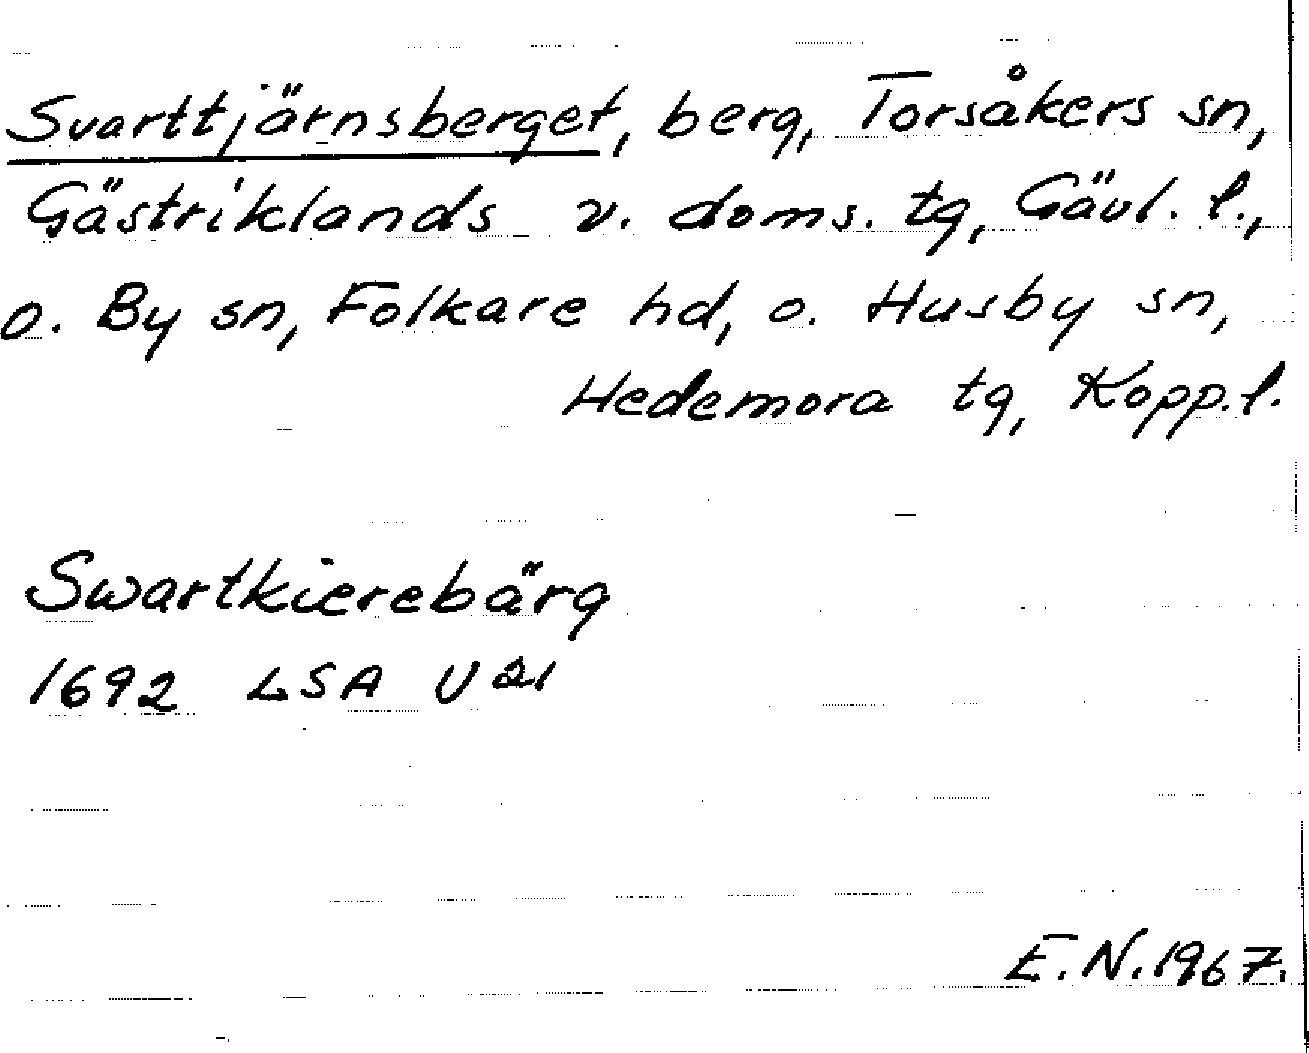 Svarttjärnsberget, berg, Torsåkers sn,
Gästriklands v. doms. tg, Gävl. l.,
o. By sn, Folkare hd, o. Husby sn,
Hedemora tg, Kopp. l.
Swartkierebärg
1692 LSA U 21
E.N. 1967.